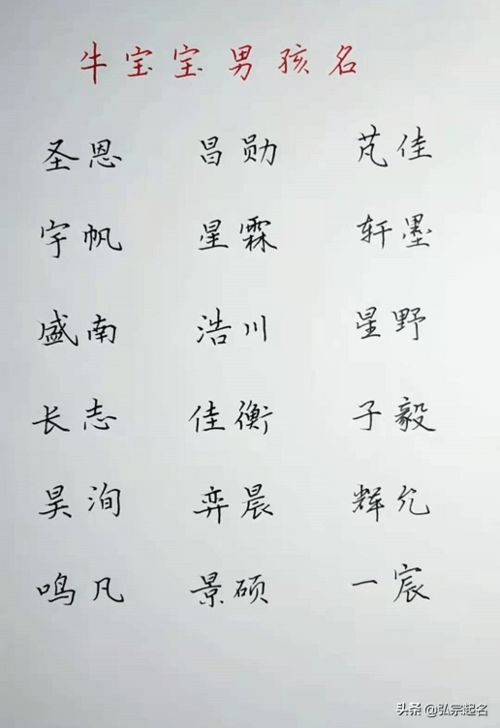 牛宝宝男孩名
圣恩 昌勋 芃佳
宇帆 星霖 轩墨
盛南 浩川 星野
长志 佳衡 子毅
昊洵 弈晨 辉允
鸣凡 景硕 一宸
头条 @弘宗起名